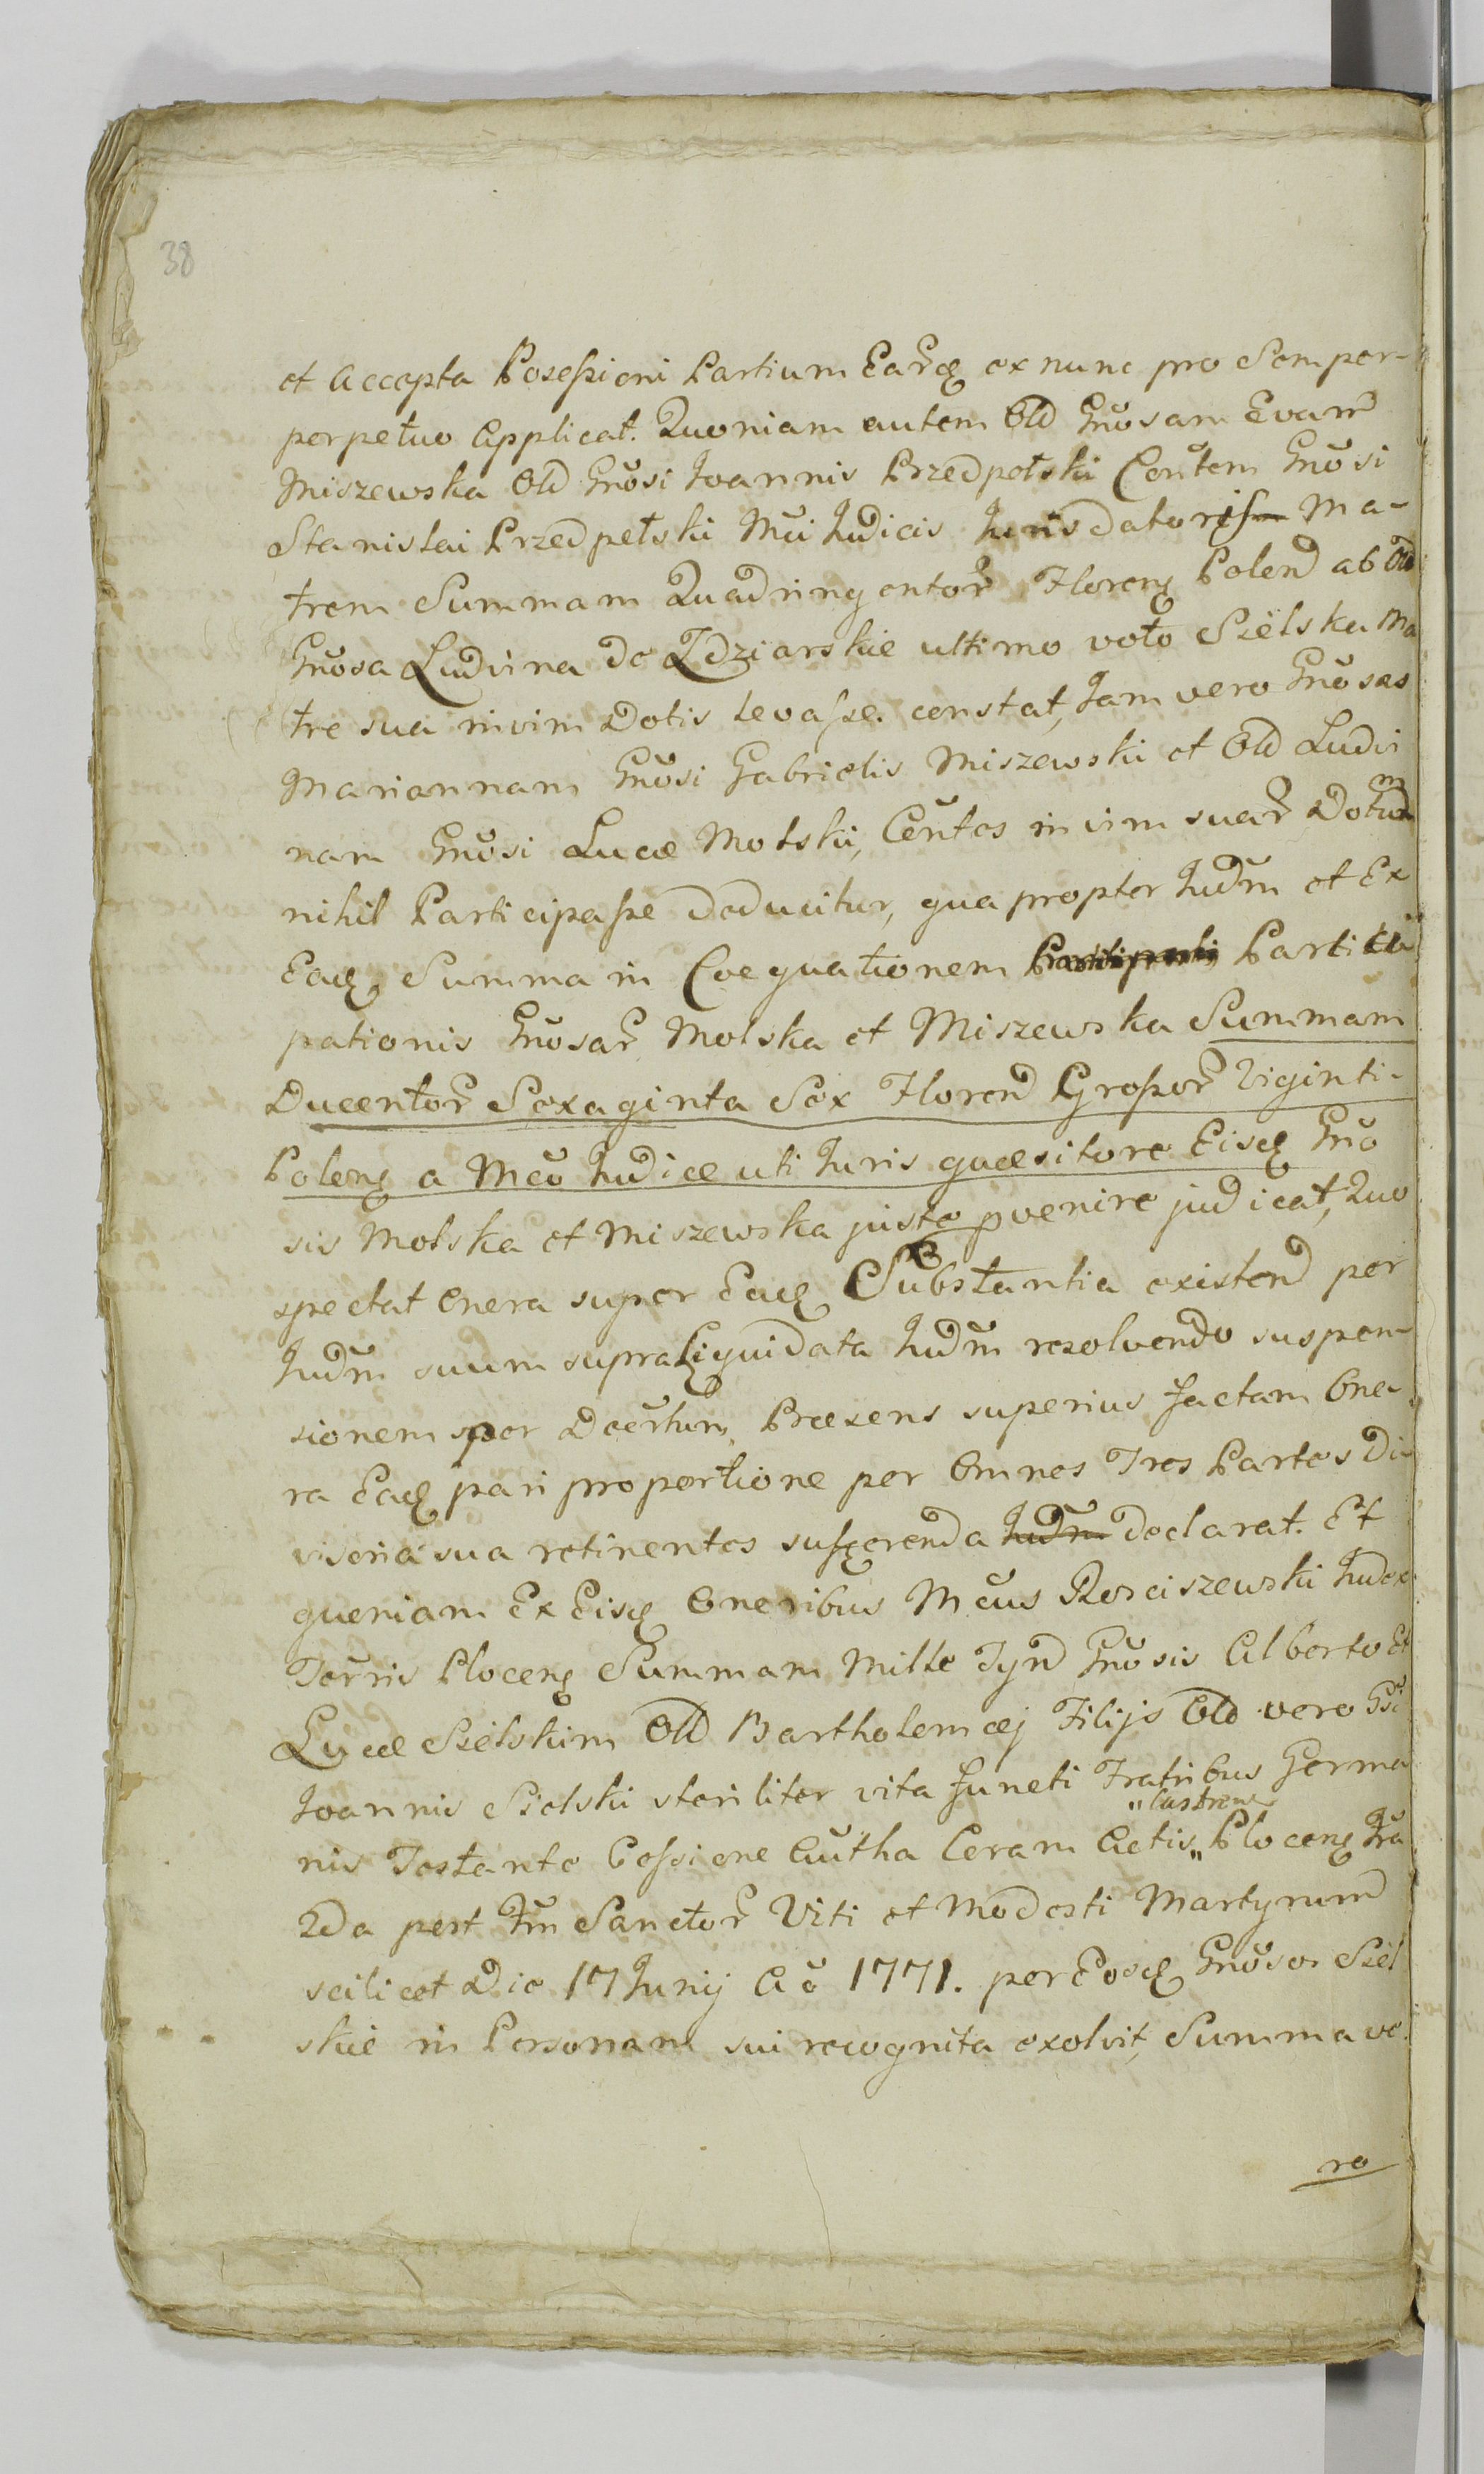 38
et Accepta Possessioni Partium Earq ex nunc pro Semper-
perpetuo Applicat. Quoniam autem Old Gnosam Evam
Miszewska Old Gnosi Joannis Przedpełski Contem Gnosi
Stanislai Przedpełski Mci Judicis Jurisdatoris Ma-
trem Summam Quadringentor Floreng Polend ab Old
Gnosa Ludvina de Zdziarskie ultimo voto Szelska Ma
tre sua in vim Dotis levasse constat, Jam vero Gnosas
Mariannam Gnosi Gabrielis Miszewski et Old Ludvi
nam Gnosi Lucæ Molski, Contes in vim suar Dotium
nihil Participasse deducitur, qua propter Judm et Ex
Eadq Summa in Coequationem Partici
pationis Gnosar Molska et Miszewska Summam
Ducentor Sexaginta Sex Florend Grossor Viginti-
Poleng a Mco Judice uti Juris quæsitore Eisdq Gno
sis Molska et Miszewska juste pvenire judicat, Quo
spectat onera super Eadq Substantia existend per
Judm suum supra Liquidata Judm resolvendo suspen-
sionem per Decrtum Præsens superius factam One-
ra Eadq pari proportione per Omnes Tres Partes Di-
visoria sua retinentes sufferenda Judm declarat. Et
quoniam Ex Eisdq Oneribus Mcus Rosciszewski Judex
Terris Ploceng Summam Mille Tynd Gnosis Alberto Et
Lucæ Szelskim Old Bartholemæj Filijs Old vero Gsi
Joannis Sielski steriliter vita functi Fratribus Germa
nis Testante Cessione Autha Coram Actis „ Ploceng Fra
„ Castrens
2da post Fm Sanctor Viti et Modesti Martyrum
scilicet Die 17 Junij Ao 1771. per Eosdq Gnosos Szel
skie in Personam sui recognita exolvit, Summa ve-
ro